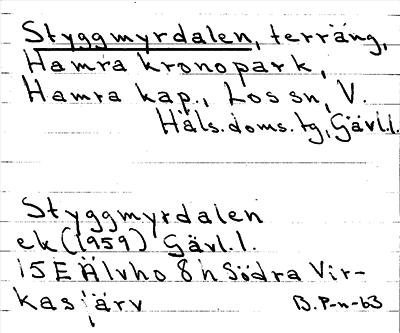 Styggmyrdalen, terräng,
Hamra kronopark,
Hamra kap., Los sn, V.
Häls. doms. tg, Gävl. l.
Styggmyrdalen
ek (1959) Gävl. l.
15E Älvho 8h Södra Vir-
kasjärv
B. P-n-63